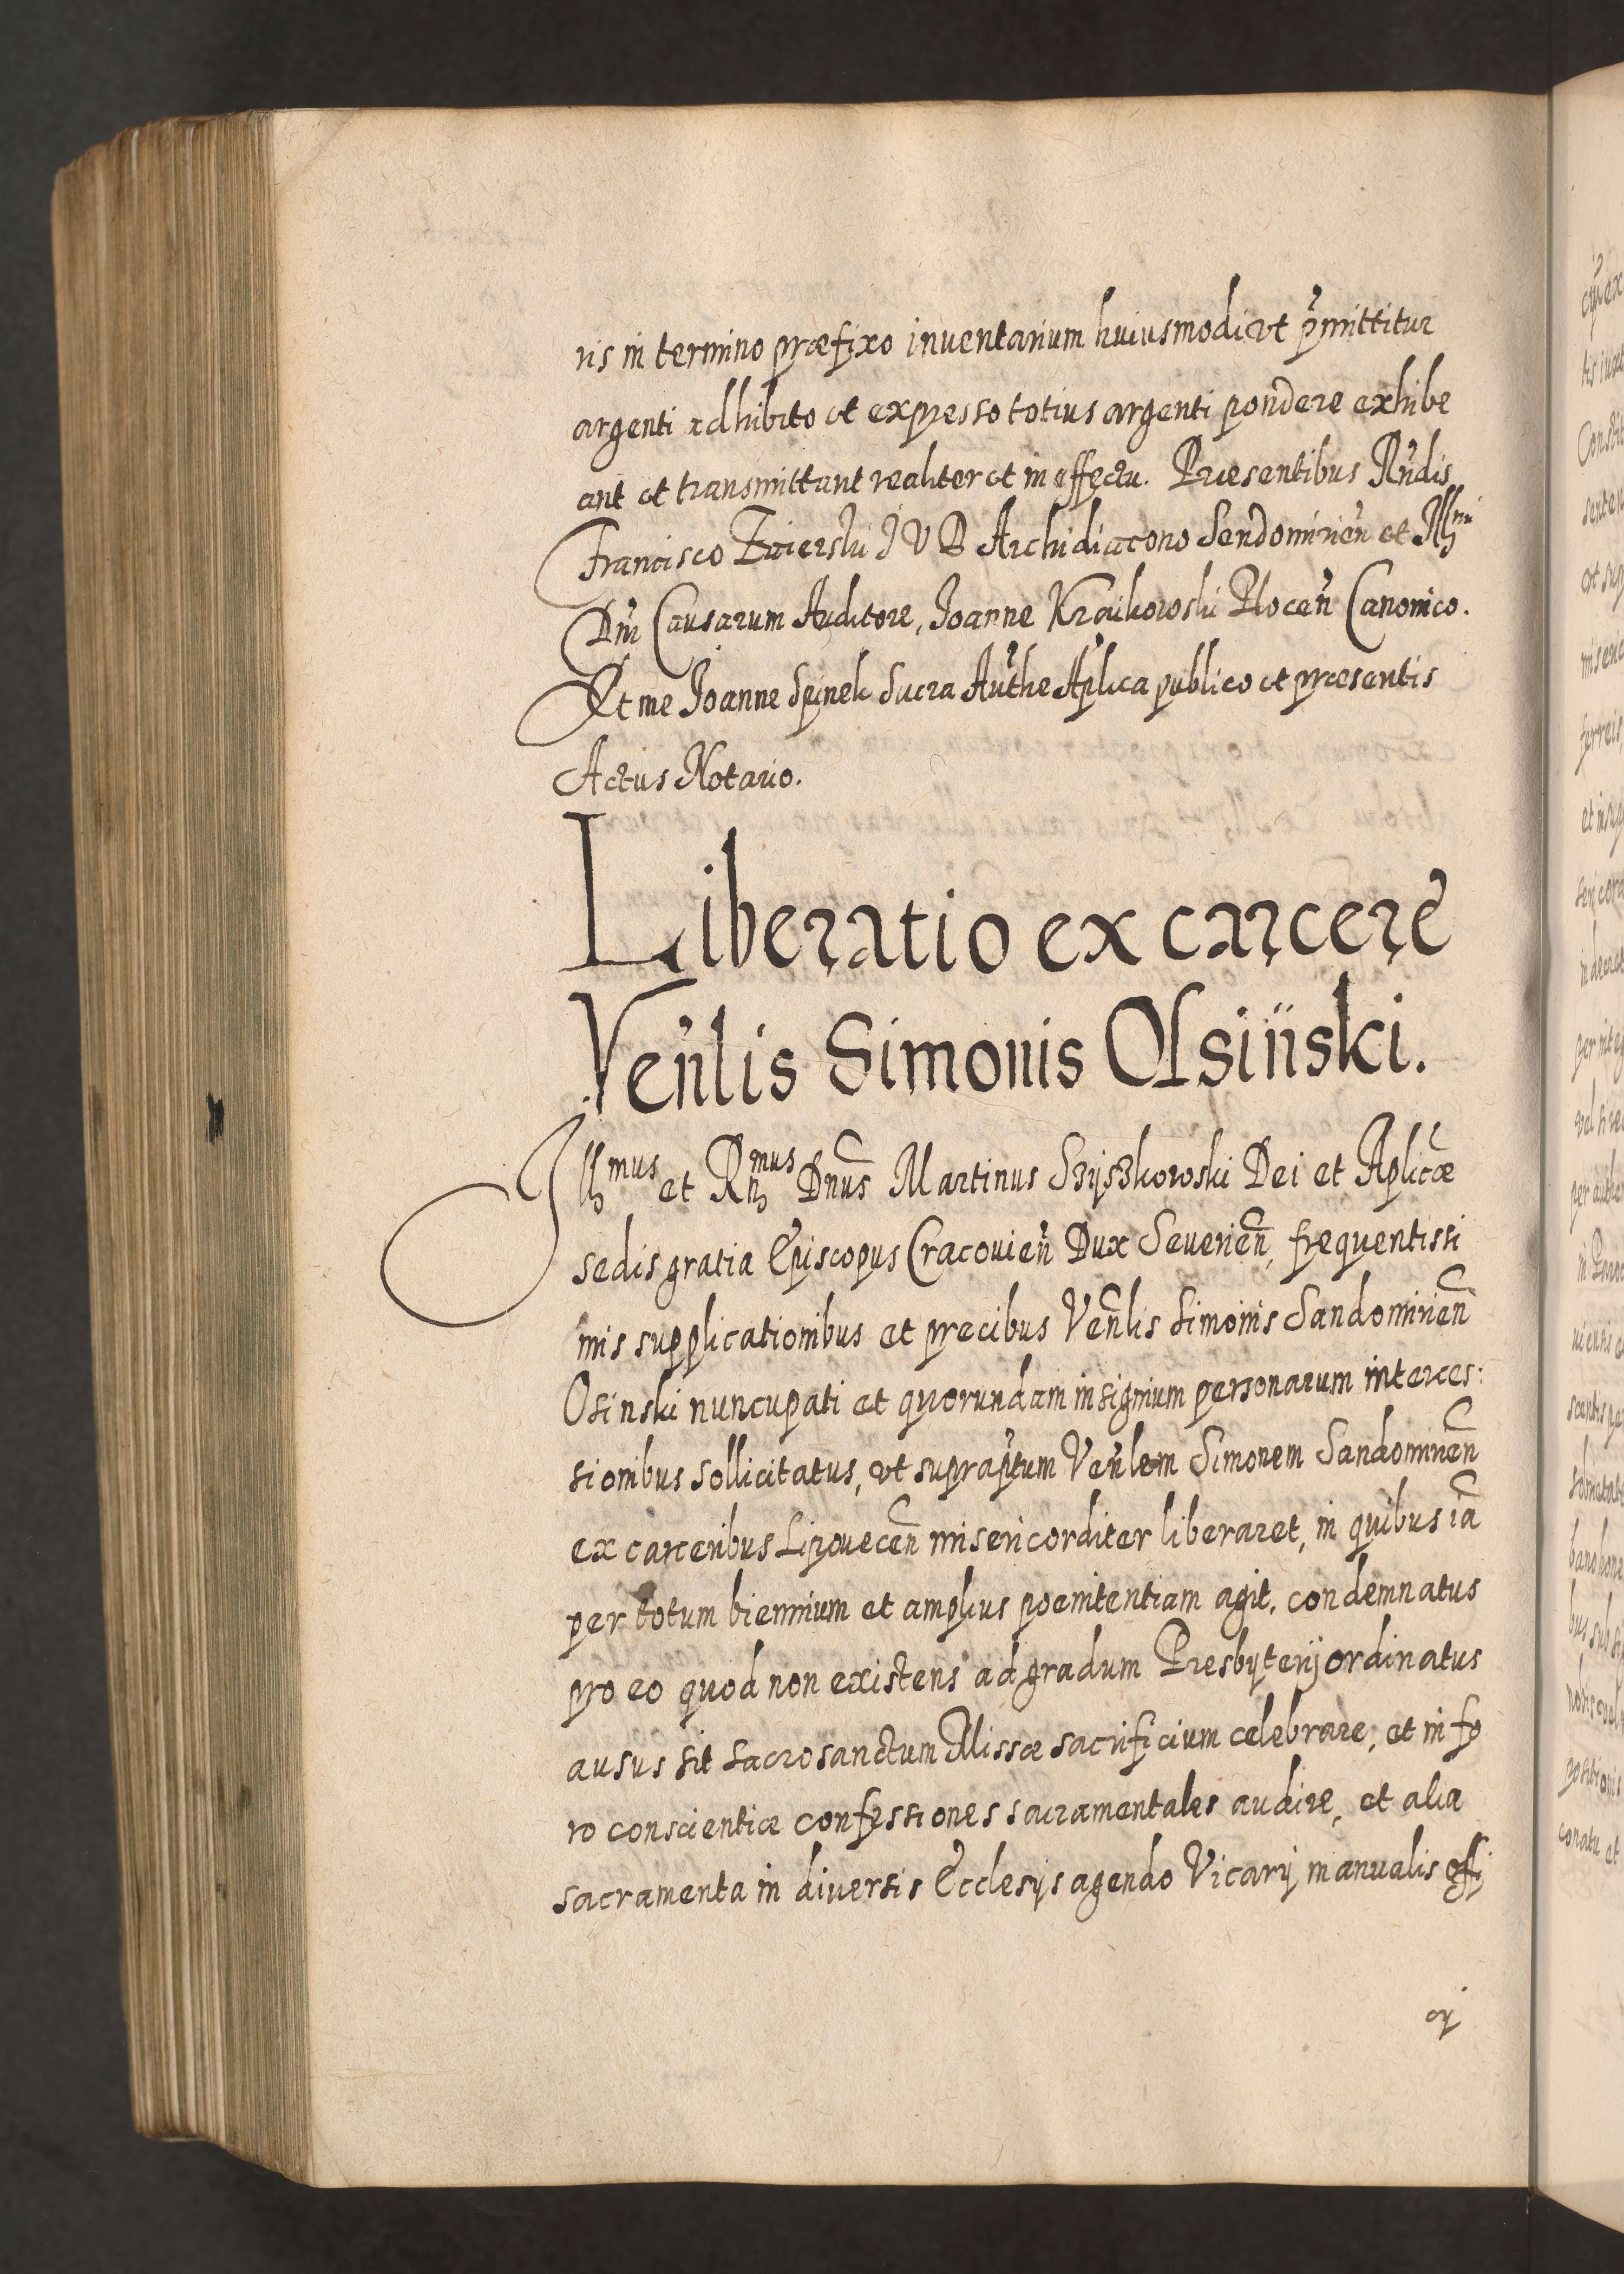 ris in termino præfixo inventarium huiusmodi ut p̃mittitur
argenti adhibito et expresso totius argenti pondere exhibe
ant et transmittant realiter et in effectu. Præsentibus Rñdis
Francisco Zaierski J V D Archidiacono Sendomirień et Illmi
Dñi Causarum Auditore, Joanne Kraikowski Plocen̄ Canonico.
Et me Joanne Spinek Sacra Auṫhe Aplica publico et præsentis
Actus Notario.
Liberatio ex carcere
Veñlis Simonis Osinski.
Illmus et Rmus Dnus Martinus Szyszkowski Dei et Aplicæ
sedis gratia Episcopus Cracovien̄ Dux Severien̄, frequentissi
mis supplicationibus et precibus Ven̄lis Simonis Sandomirien̄
Osinski nuncupati et quorundam insignium personarum interces:
sionibus sollicitatus, ut suprap̃tum Ven̄lem Simonem Sandomirien̄
ex carceribus Lipovecen̄ misericorditer liberaret, in quibus iã
per totum biennium et amplius poenitentiam agit, condemnatus
pro eo quod non existens ad gradum Presbyterij ordinatus
ausus sit sacrosanctum Missæ sacrificium celebrare, et in fo
ro conscientiæ confessiones sacramentales audire, et alia
sacramenta in diversis Ecclesijs agendo Vicarij manualis offi
cij